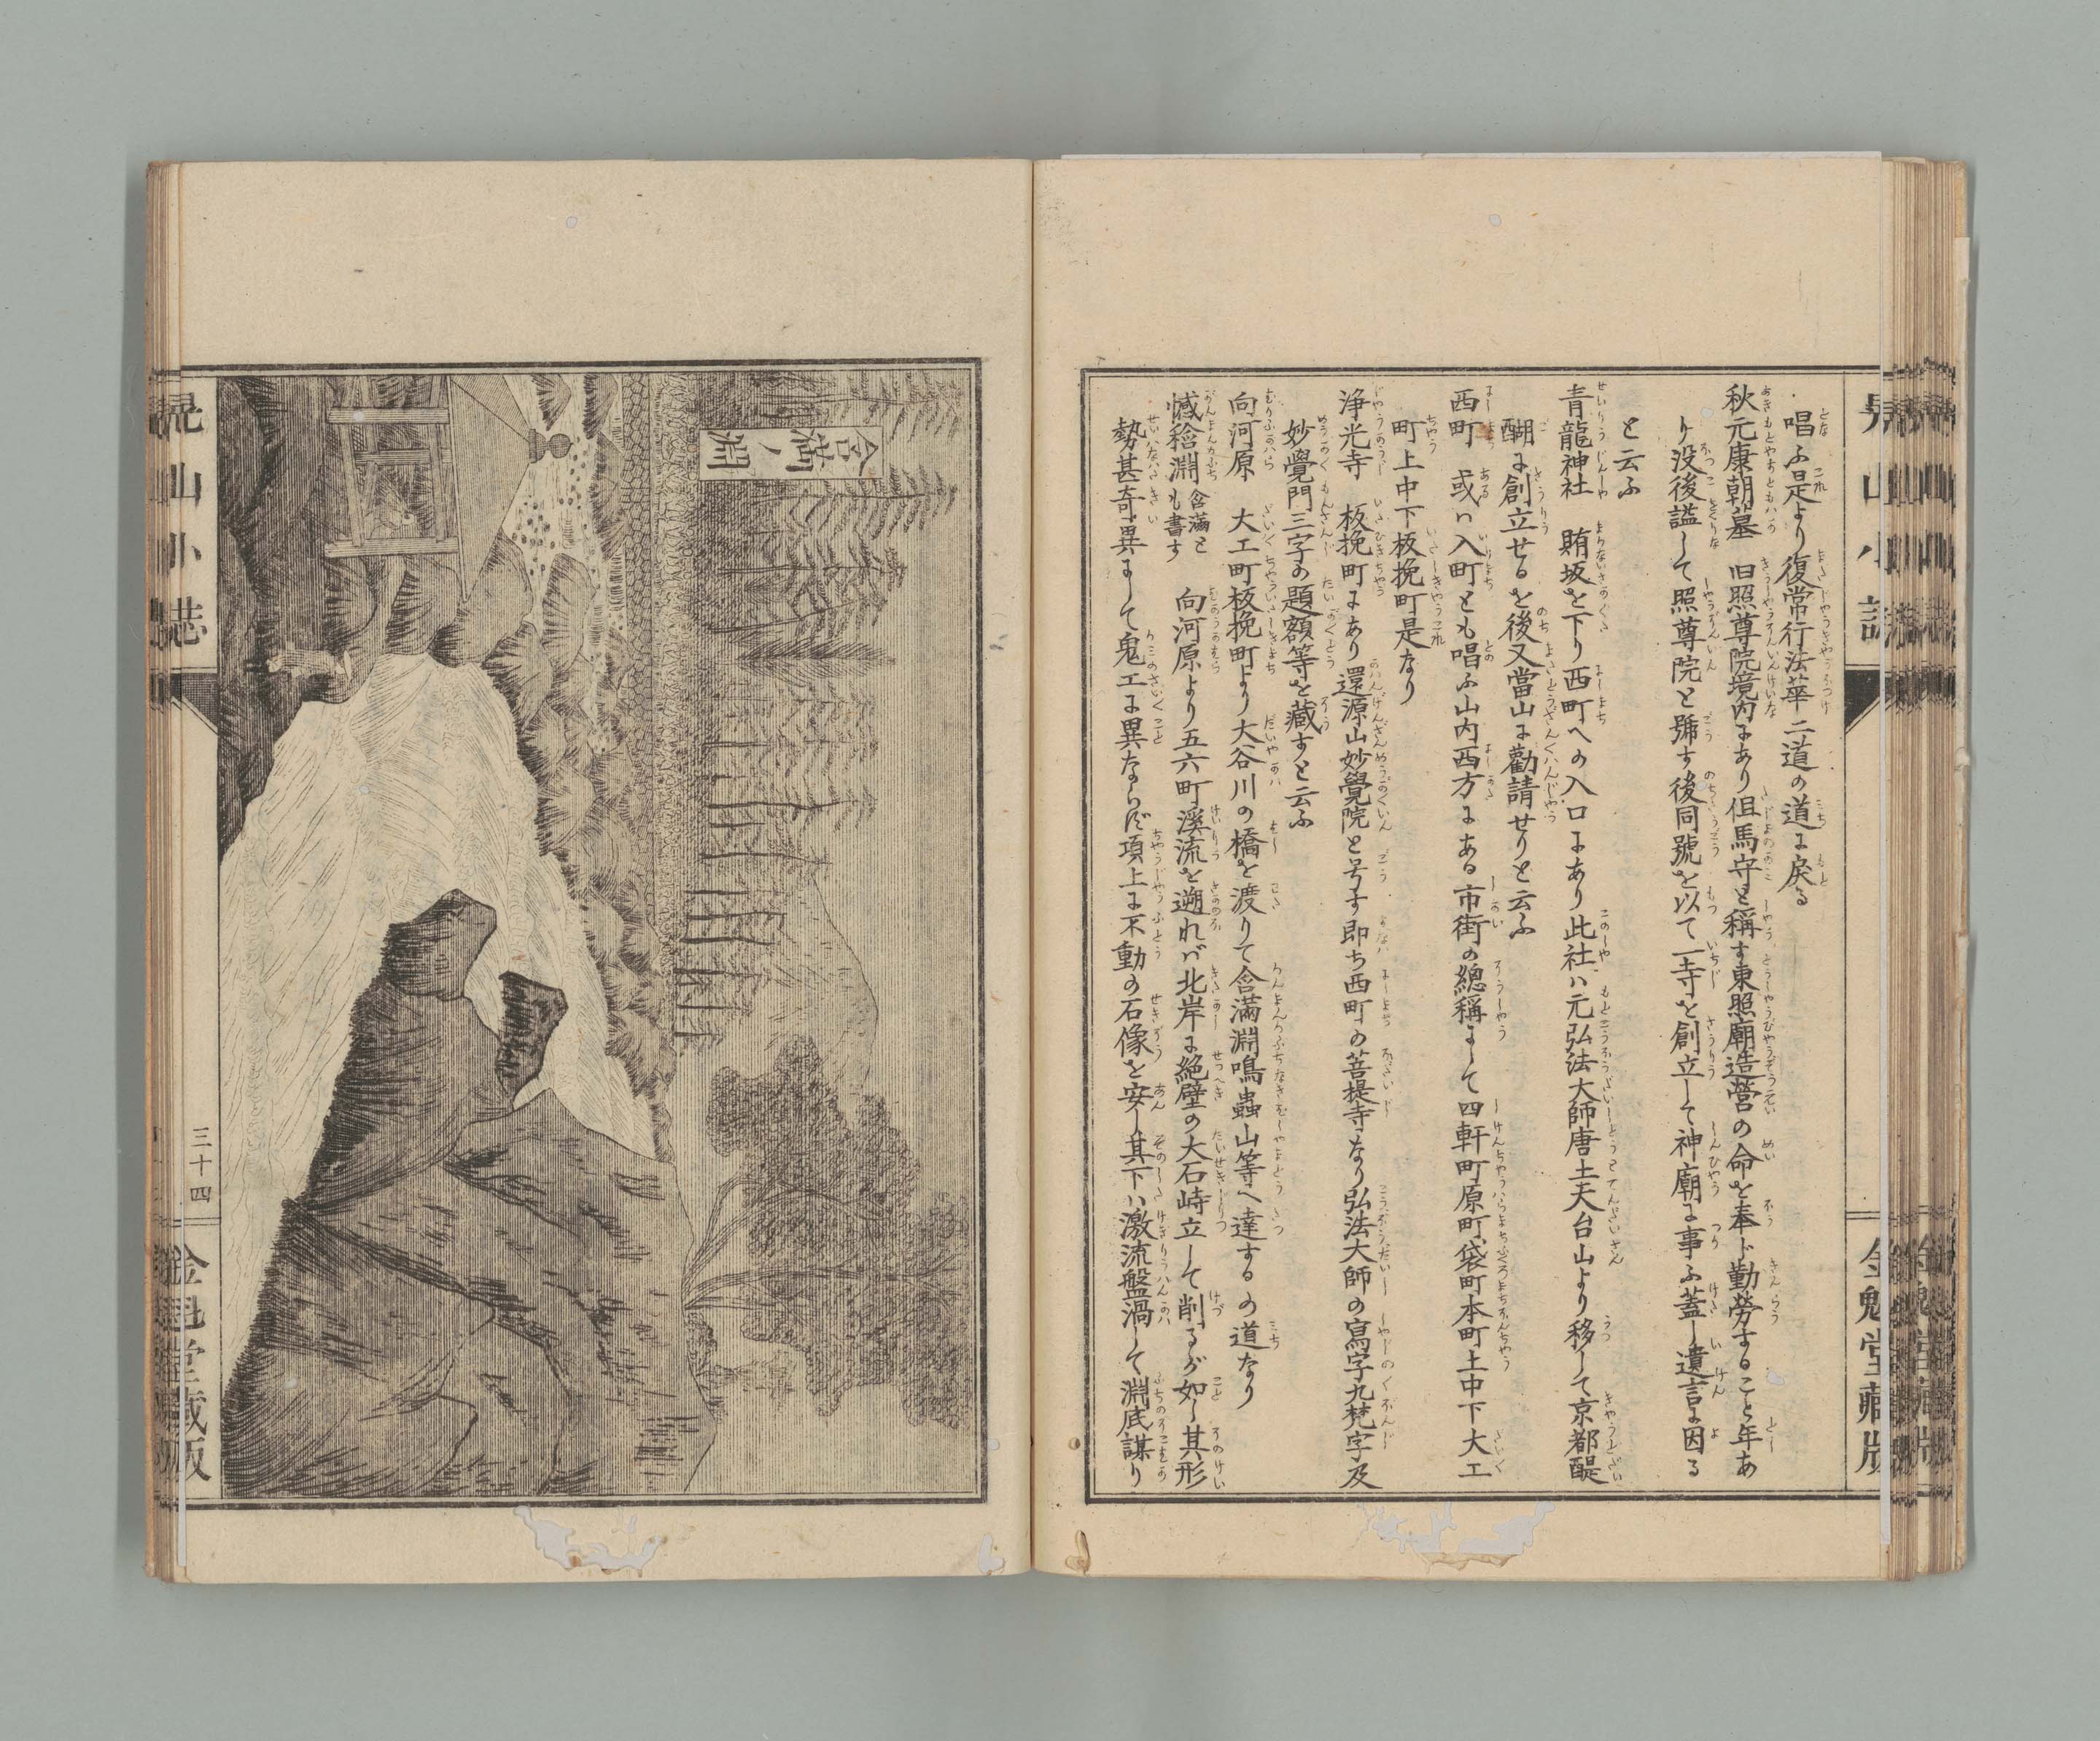 唱ふ是より復常行法華二道の道に戻る
秋元康朝墓 旧照尊院境内にあり但馬守と稱す東照廟造營の命を奉じ勤勞すること年あ
り没後謚して照尊院と號す後同號を以て一寺を創立して神廟に事ふ蓋し遺言に因る
と云ふ
青龍神社 賄坂を下り西町への入口にあり此社ハ元弘法大師唐土天台山より移して京都醍
醐に創立せるを後又當山に勸請せりと云ふ
西町 或ハ入町とも唱ふ山内西方にある市街の總稱にして四軒町原町袋町本町上中下大工
町上中下板挽町是なり
浄光寺 板挽町にあり還源山妙覺院と号す即ち西町の菩提寺なり弘法大師の寫字九梵字及
妙覺門三字の題額等を藏すと云ふ
向河原 大工町板挽町より大谷川の橋を渡りて含滿淵鳴蟲山等へ達するの道なり
憾䅖淵 含滿と
も書す 向河原より五六町溪流を遡れバ北岸に絶壁の大石峙立して削るが如し其形
勢甚奇異にして鬼工に異ならず項上に不動の石像を安し其下ハ激流盤渦して淵底謀り
晃山小誌
金魁堂藏版
含滿ノ淵
晃山小誌
三十四
金魁堂藏版